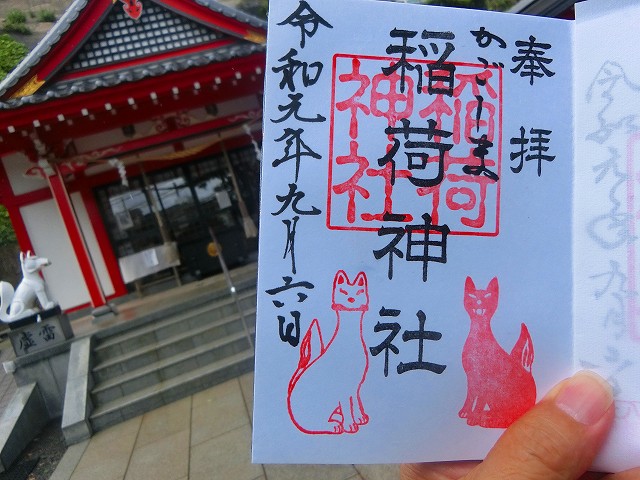 奉拝
かごしま
稲荷神社
稲荷
神社
令和元年九月六日